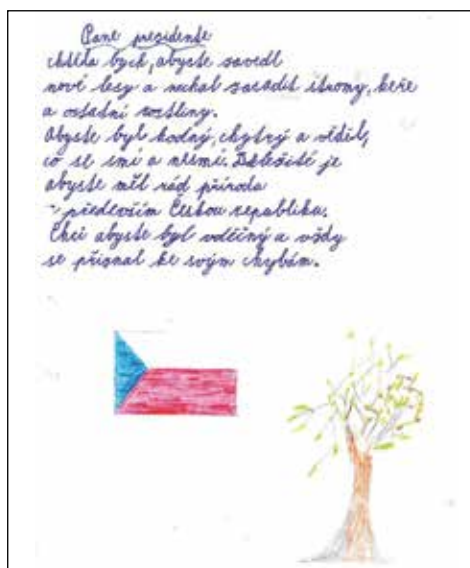 Pane prezidente
chtěla bych, abyste zavedl
nové lesy a nechal zasadit stromy, keře
a ostatní rostliny.
Abyste byl hodný, chytrý a věděl,
co se smí a nesmí. Důležité je
abyste měl rád příroda
především Českou republiku.
Chci abyste byl vděčný a vždy
se přiznal ke svým chybám.